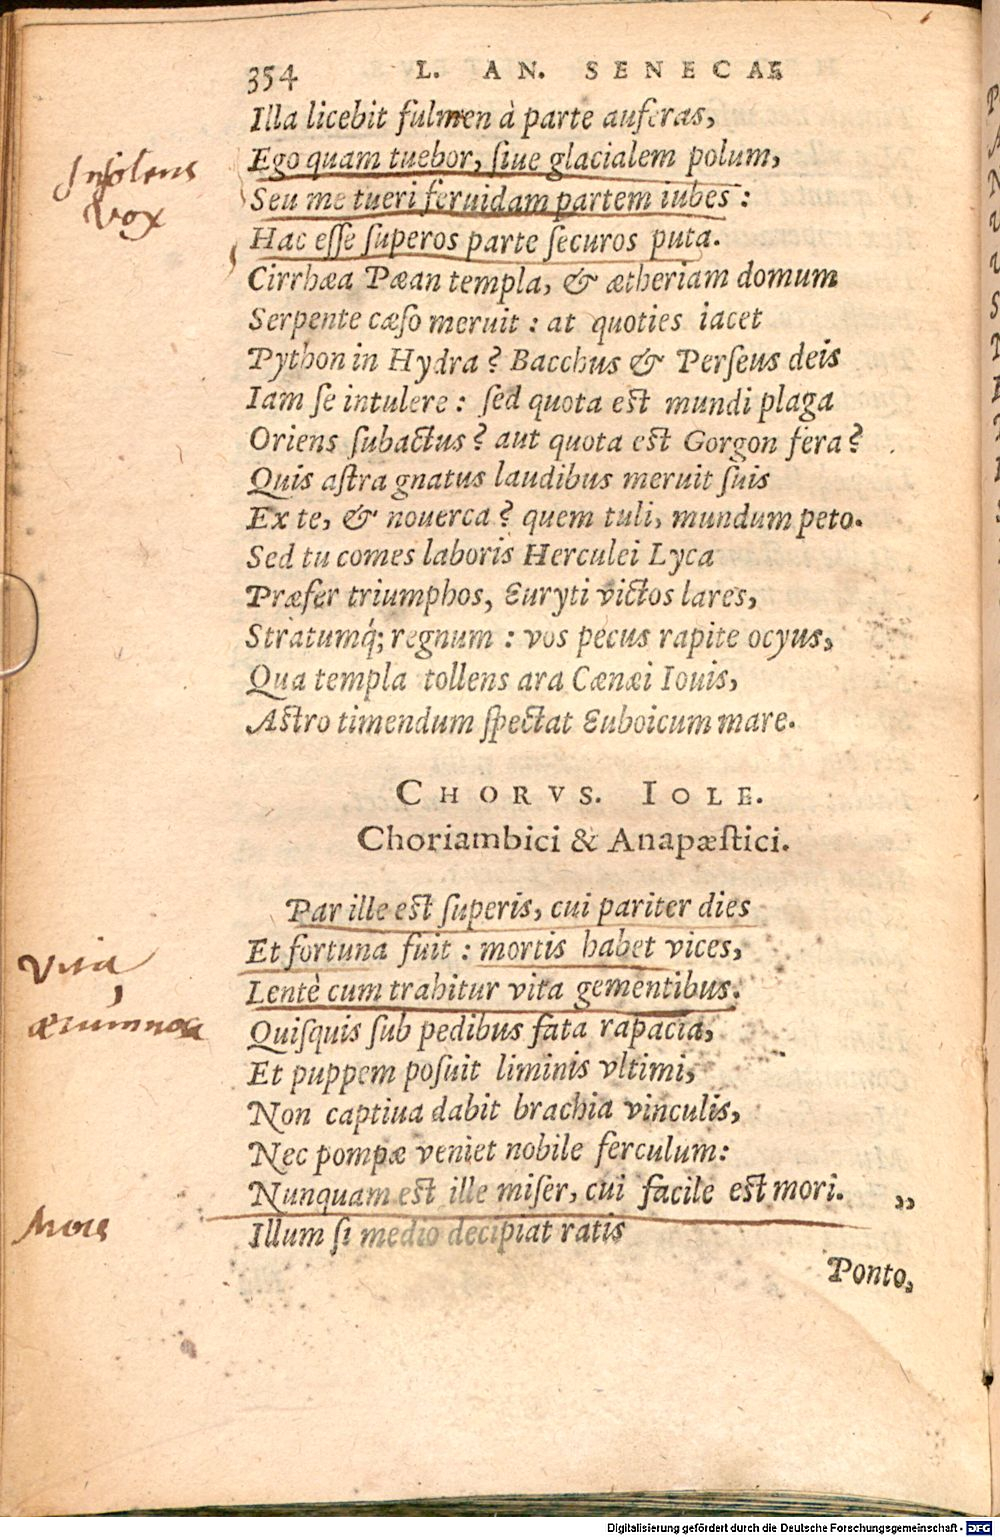 354 L. AN. SENECAE
Illa licebit fulmen à parte auferas,
Ego quam tuebor, siue glacialem polum,
Insolens
Seu me tueri feruidam partem iubes:
Vox
Hac esse superos parte securos puta.
Cirrhæa Pæan templa, & ætheriam domum
Serpente cæso meruit: at quoties iacet
Python in Hydra? Bacchus & Perseus deis
Iam se intulere: sed quota est mundi plaga
Oriens subactus? aut quota est Gorgon fera?
Quis astra gnatus laudibus meruit suis
Ex te, & nouerca? quem tuli, mundum peto.
Sed tu comes laboris Herculei Lyca
Præfer triumphos, Euryti victos lares,
Stratumq́; regnum: vos pecus rapite ocyus,
Qua templa tollens ara Cænæi Iouis,
Astro timendum spectat Euboicum mare.
CHORVS. IOLE.
Choriambici & Anapæstici.
Par ille est superis, cui pariter dies
Et fortuna fuit: mortis habet vices,
Vita
Lentè cum trahitur vita gementibus.
ærumnosa
Quisquis sub pedibus fata rapacia,
Et puppem posuit liminis vltimi,
Non captiua dabit brachia vinculis,
Nec pompæ veniet nobile ferculum:
Nunquam est ille miser, cui facile est mori. ,,
Mors
Illum si medio decipiat ratis
Ponto,
Digitalisierung gefördert durch die Deutsche Forschungsgemeinschaft - DFG